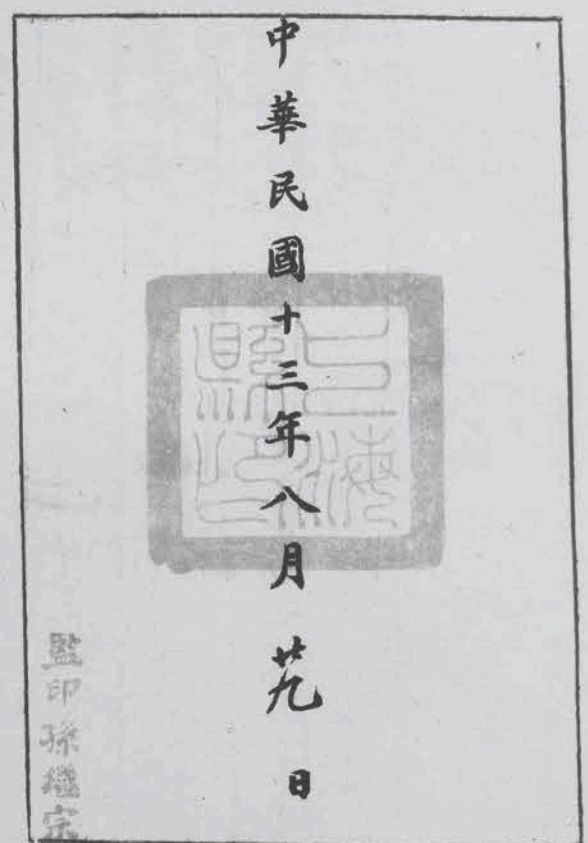 中華民國十三年八月廿九日
上海縣印
監印孫繼宗